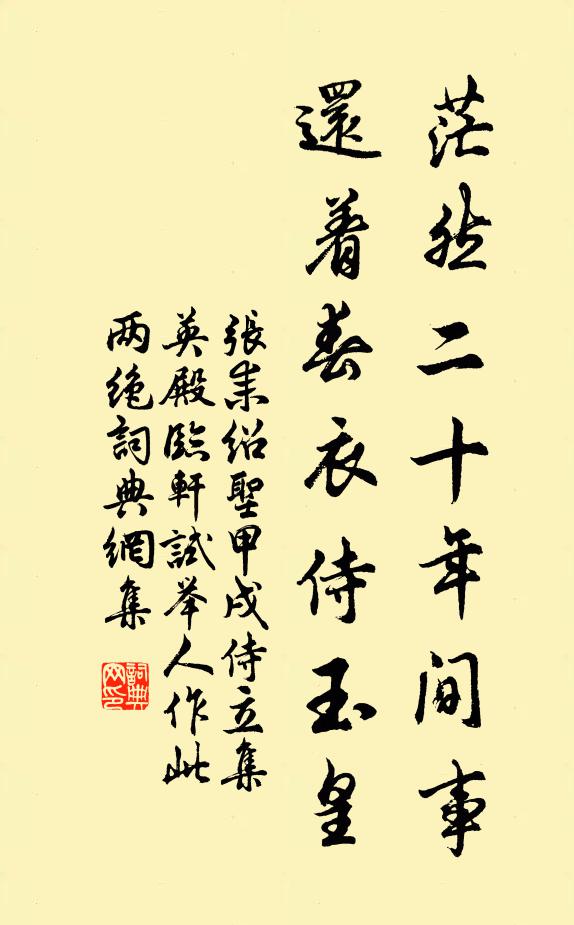 茫然二十年间事
還着春衣侍玉皇
張耒紹聖甲戌侍立集
英殿臨軒試举人作此
两绝詞典網集
詞典网印